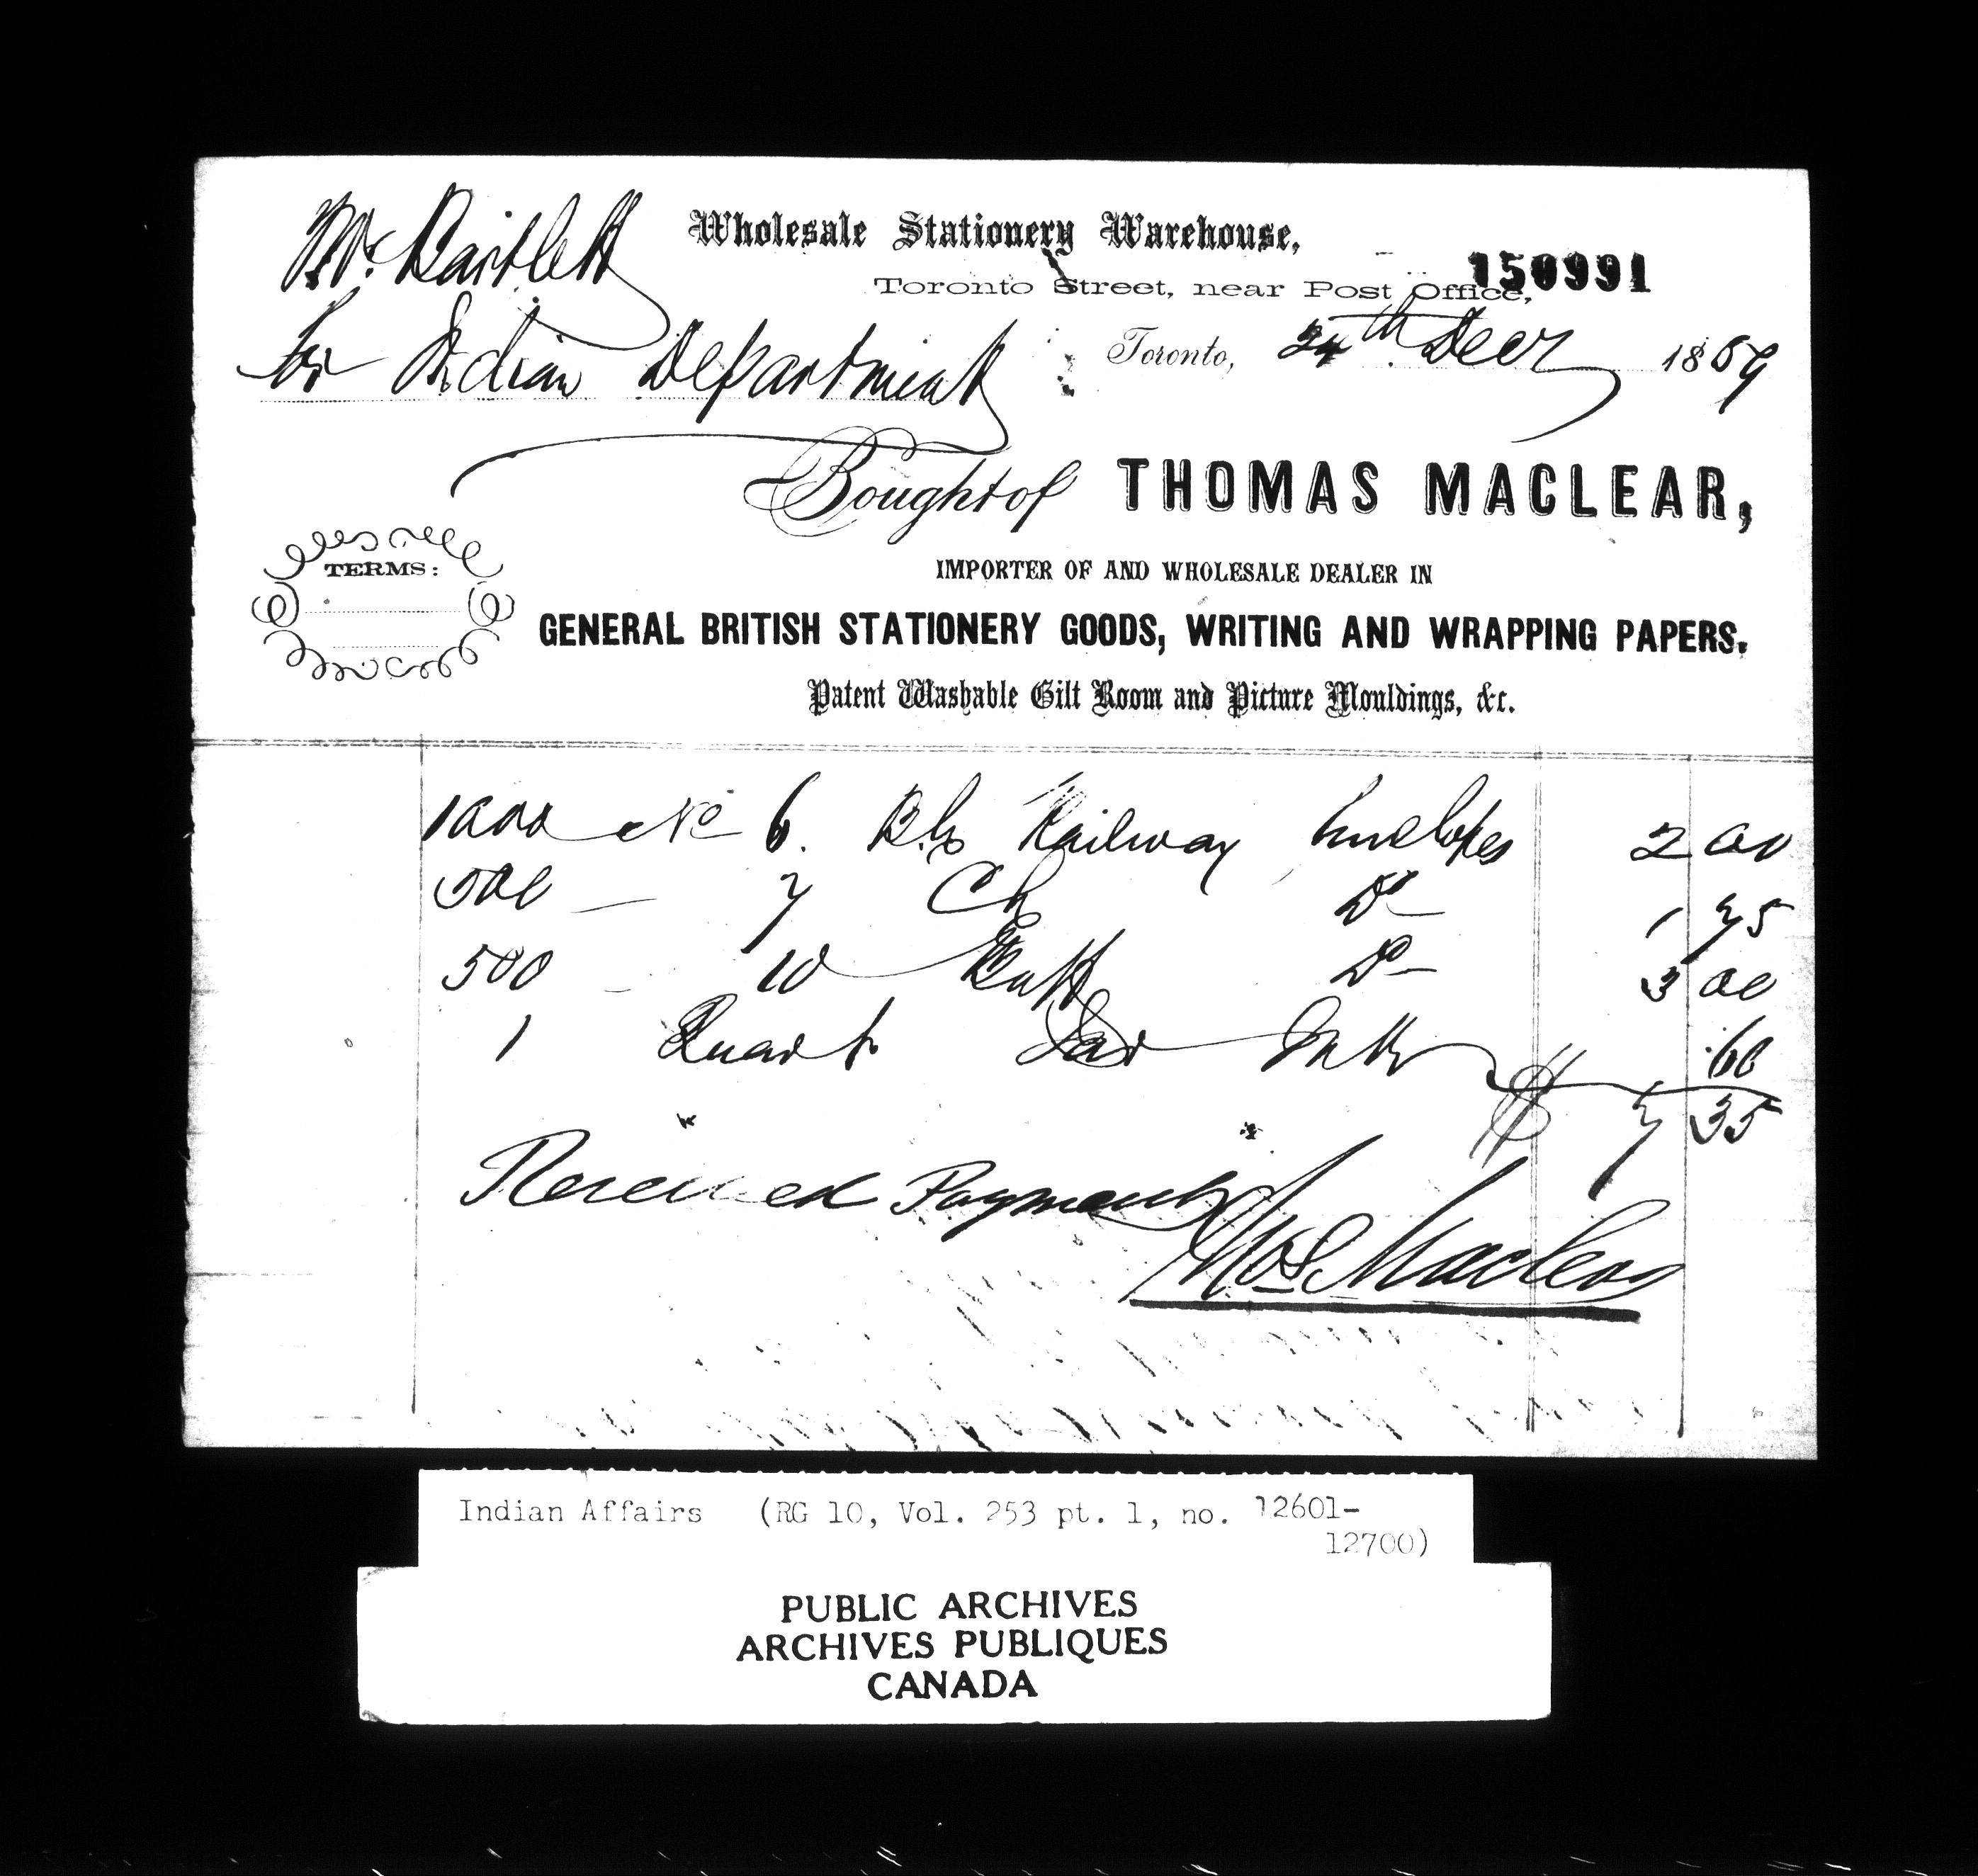 Mr. Bartlett
Wholesale Stationery Warehouse,
150991
Toronto Street, near Post Office,
for Indian Department
Toronto, 24th Decr 1859
Bought of THOMAS MACLEAR,
TERMS:
IMPORTER OF AND WHOLESALE DEALER IN
GENERAL BRITISH STATIONERY GOODS, WRITING AND WRAPPING PAPERS.
Patent Washable Gilt Room and Picture Mouldings, &c.
1000 No 6. Railway Envelopes 2 00
500 — 7 Do 1 75
500 — 10 Buff Do 3 00
1 Quart Jar Ink .60
$ 7 35
Received Payment
Thos Maclear
Indian Affairs (RG 10, Vol. 253 pt. 1, no. 12601-
12700)
PUBLIC ARCHIVES
ARCHIVES PUBLIQUES
CANADA